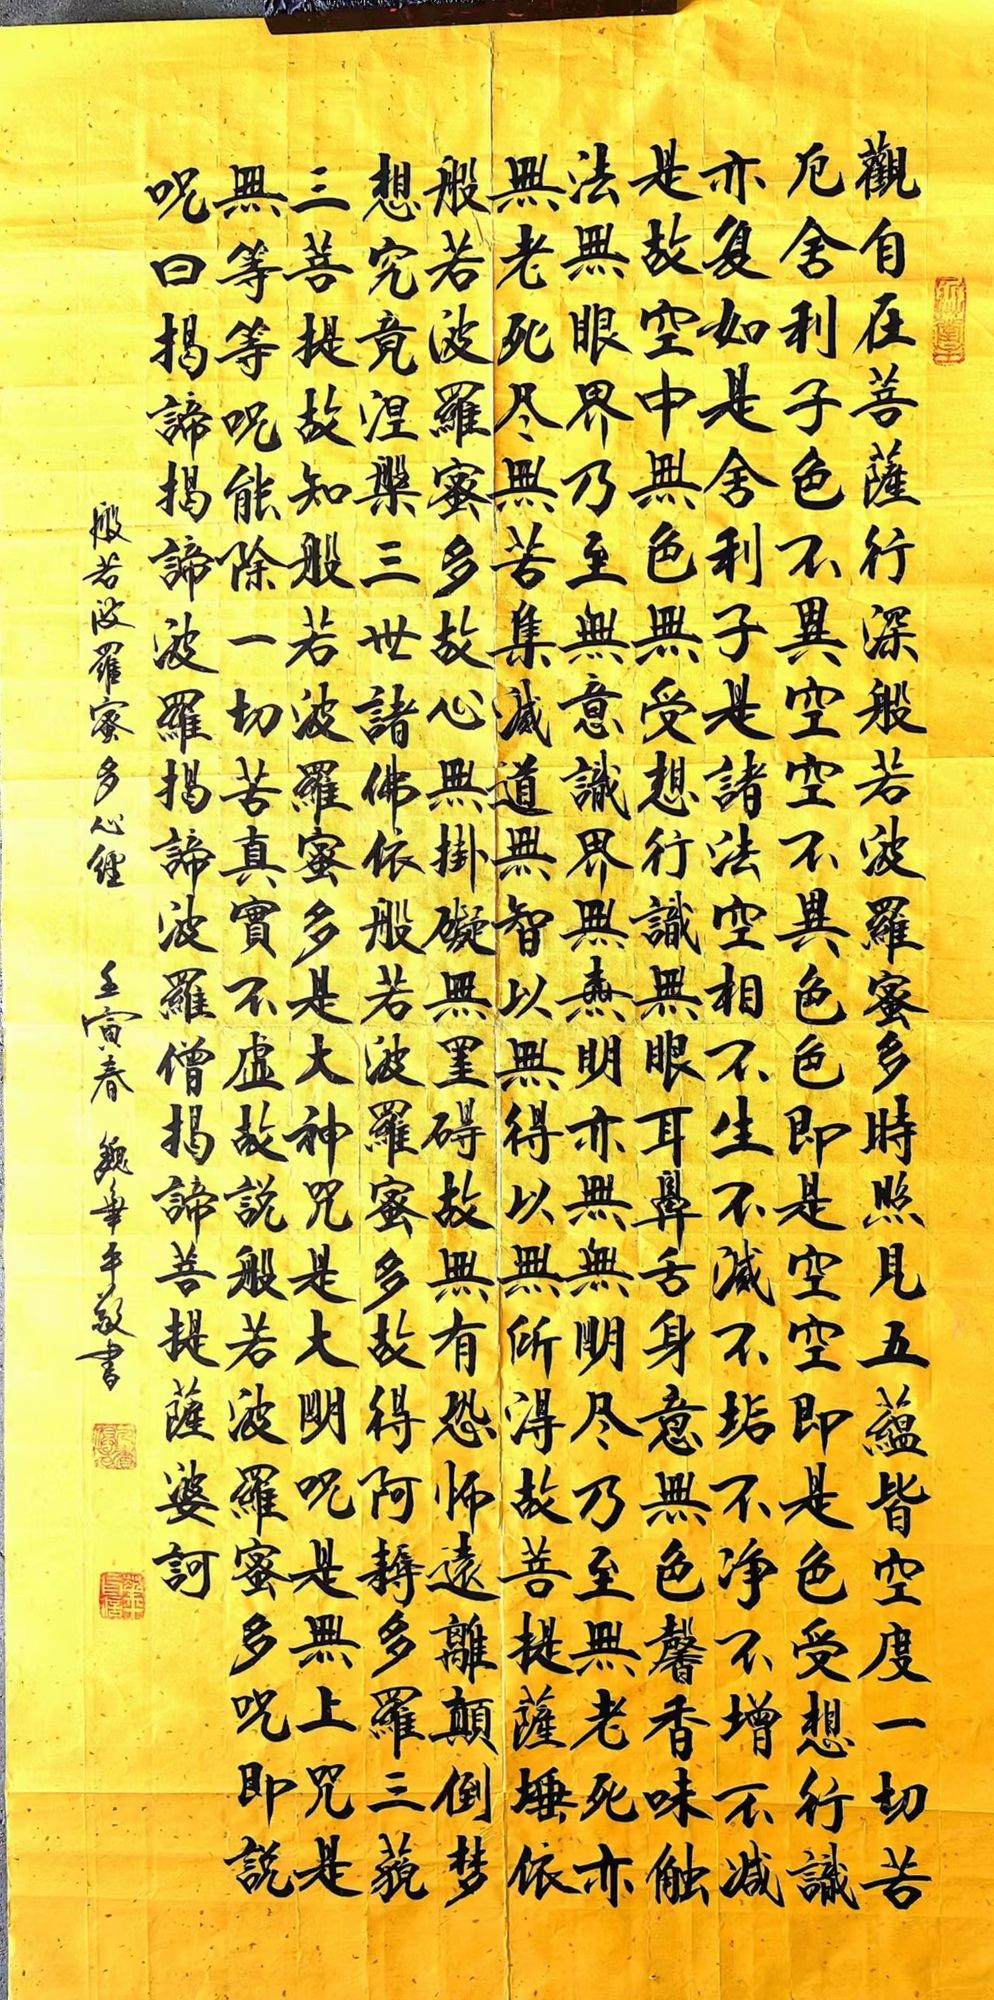 觀自在菩薩行深般若波羅蜜多時照見五蘊皆空度一切苦
厄舍利子色不異空空不異色色即是空空即是色受想行識
亦复如是舍利子是諸法空相不生不滅不垢不净不增不减
是故空中無色無受想行識無眼耳鼻舌身意無色馨香味触
法無眼界乃至無意識界無無明亦無無明尽乃至無老死亦
無老死尽無苦集滅道無智以無得以無所得故菩提薩埵依
般若波羅蜜多故心無掛礙無罣碍故無有恐怖遠離顛倒梦
想究竟涅槃三世諸佛依般若波羅蜜多故得阿耨多羅三藐
三菩提故知般若波羅蜜多是大神咒是大明呪是無上咒是
無等等呪能除一切苦真實不虛故説般若波羅蜜多呪即説
呪曰揭諦揭諦波羅揭諦波羅僧揭諦菩提薩婆訶
般若波羅蜜多心經 壬寅春 魏華平敬書